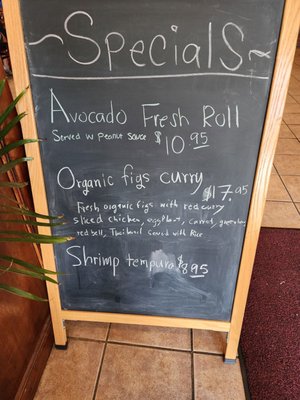 ~Specials~
Avocado Fresh Roll
Served w Peanut Sauce $10.95
Organic figs curry $17.95
Fresh organic figs with red curry
sliced chicken, eggplant, carrot, green
red bell, Thai basil served with Rice
Shrimp tempura $8.95